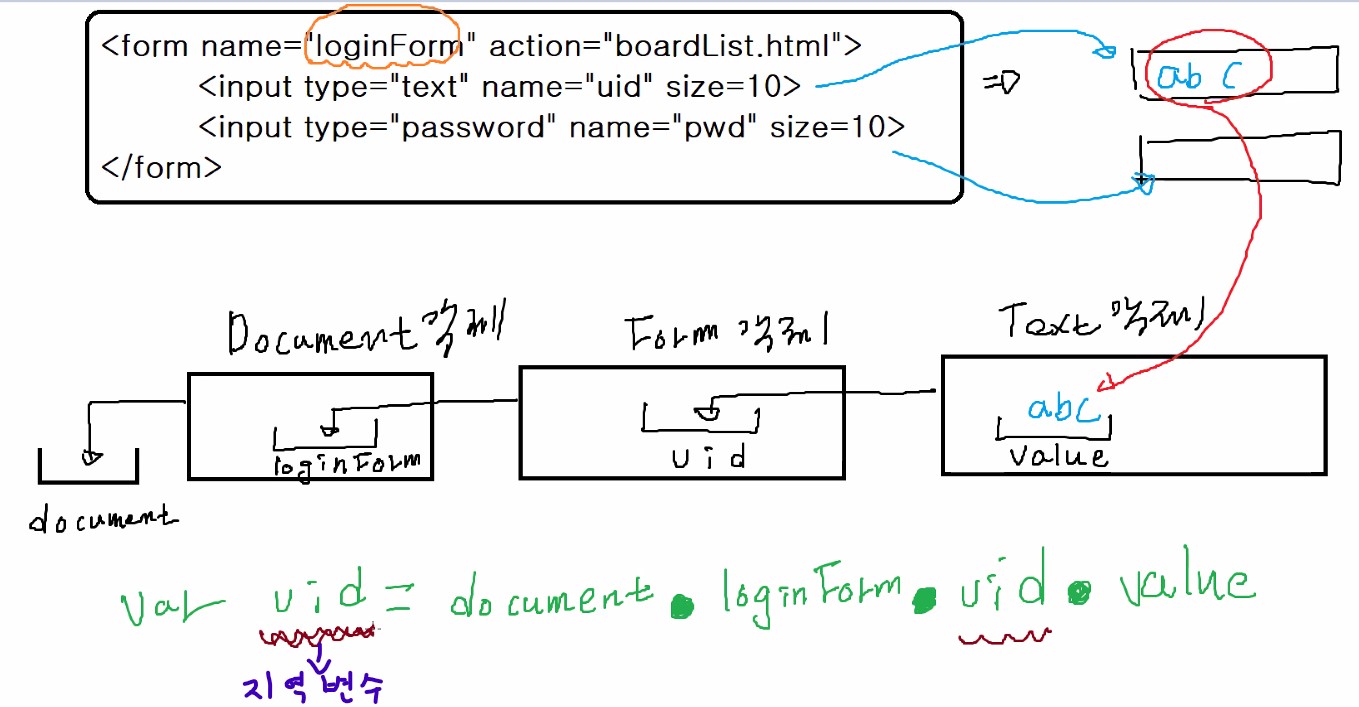 <form name="loginForm" action="boardList.html">
<input type="text" name="uid" size=10>
<input type="password" name="pwd" size=10>
</form>
ab C
Document 객체
Form 객체
Text 객체
loginForm
uid
abC
value
document
var uid = document.loginForm.uid.value
지역변수